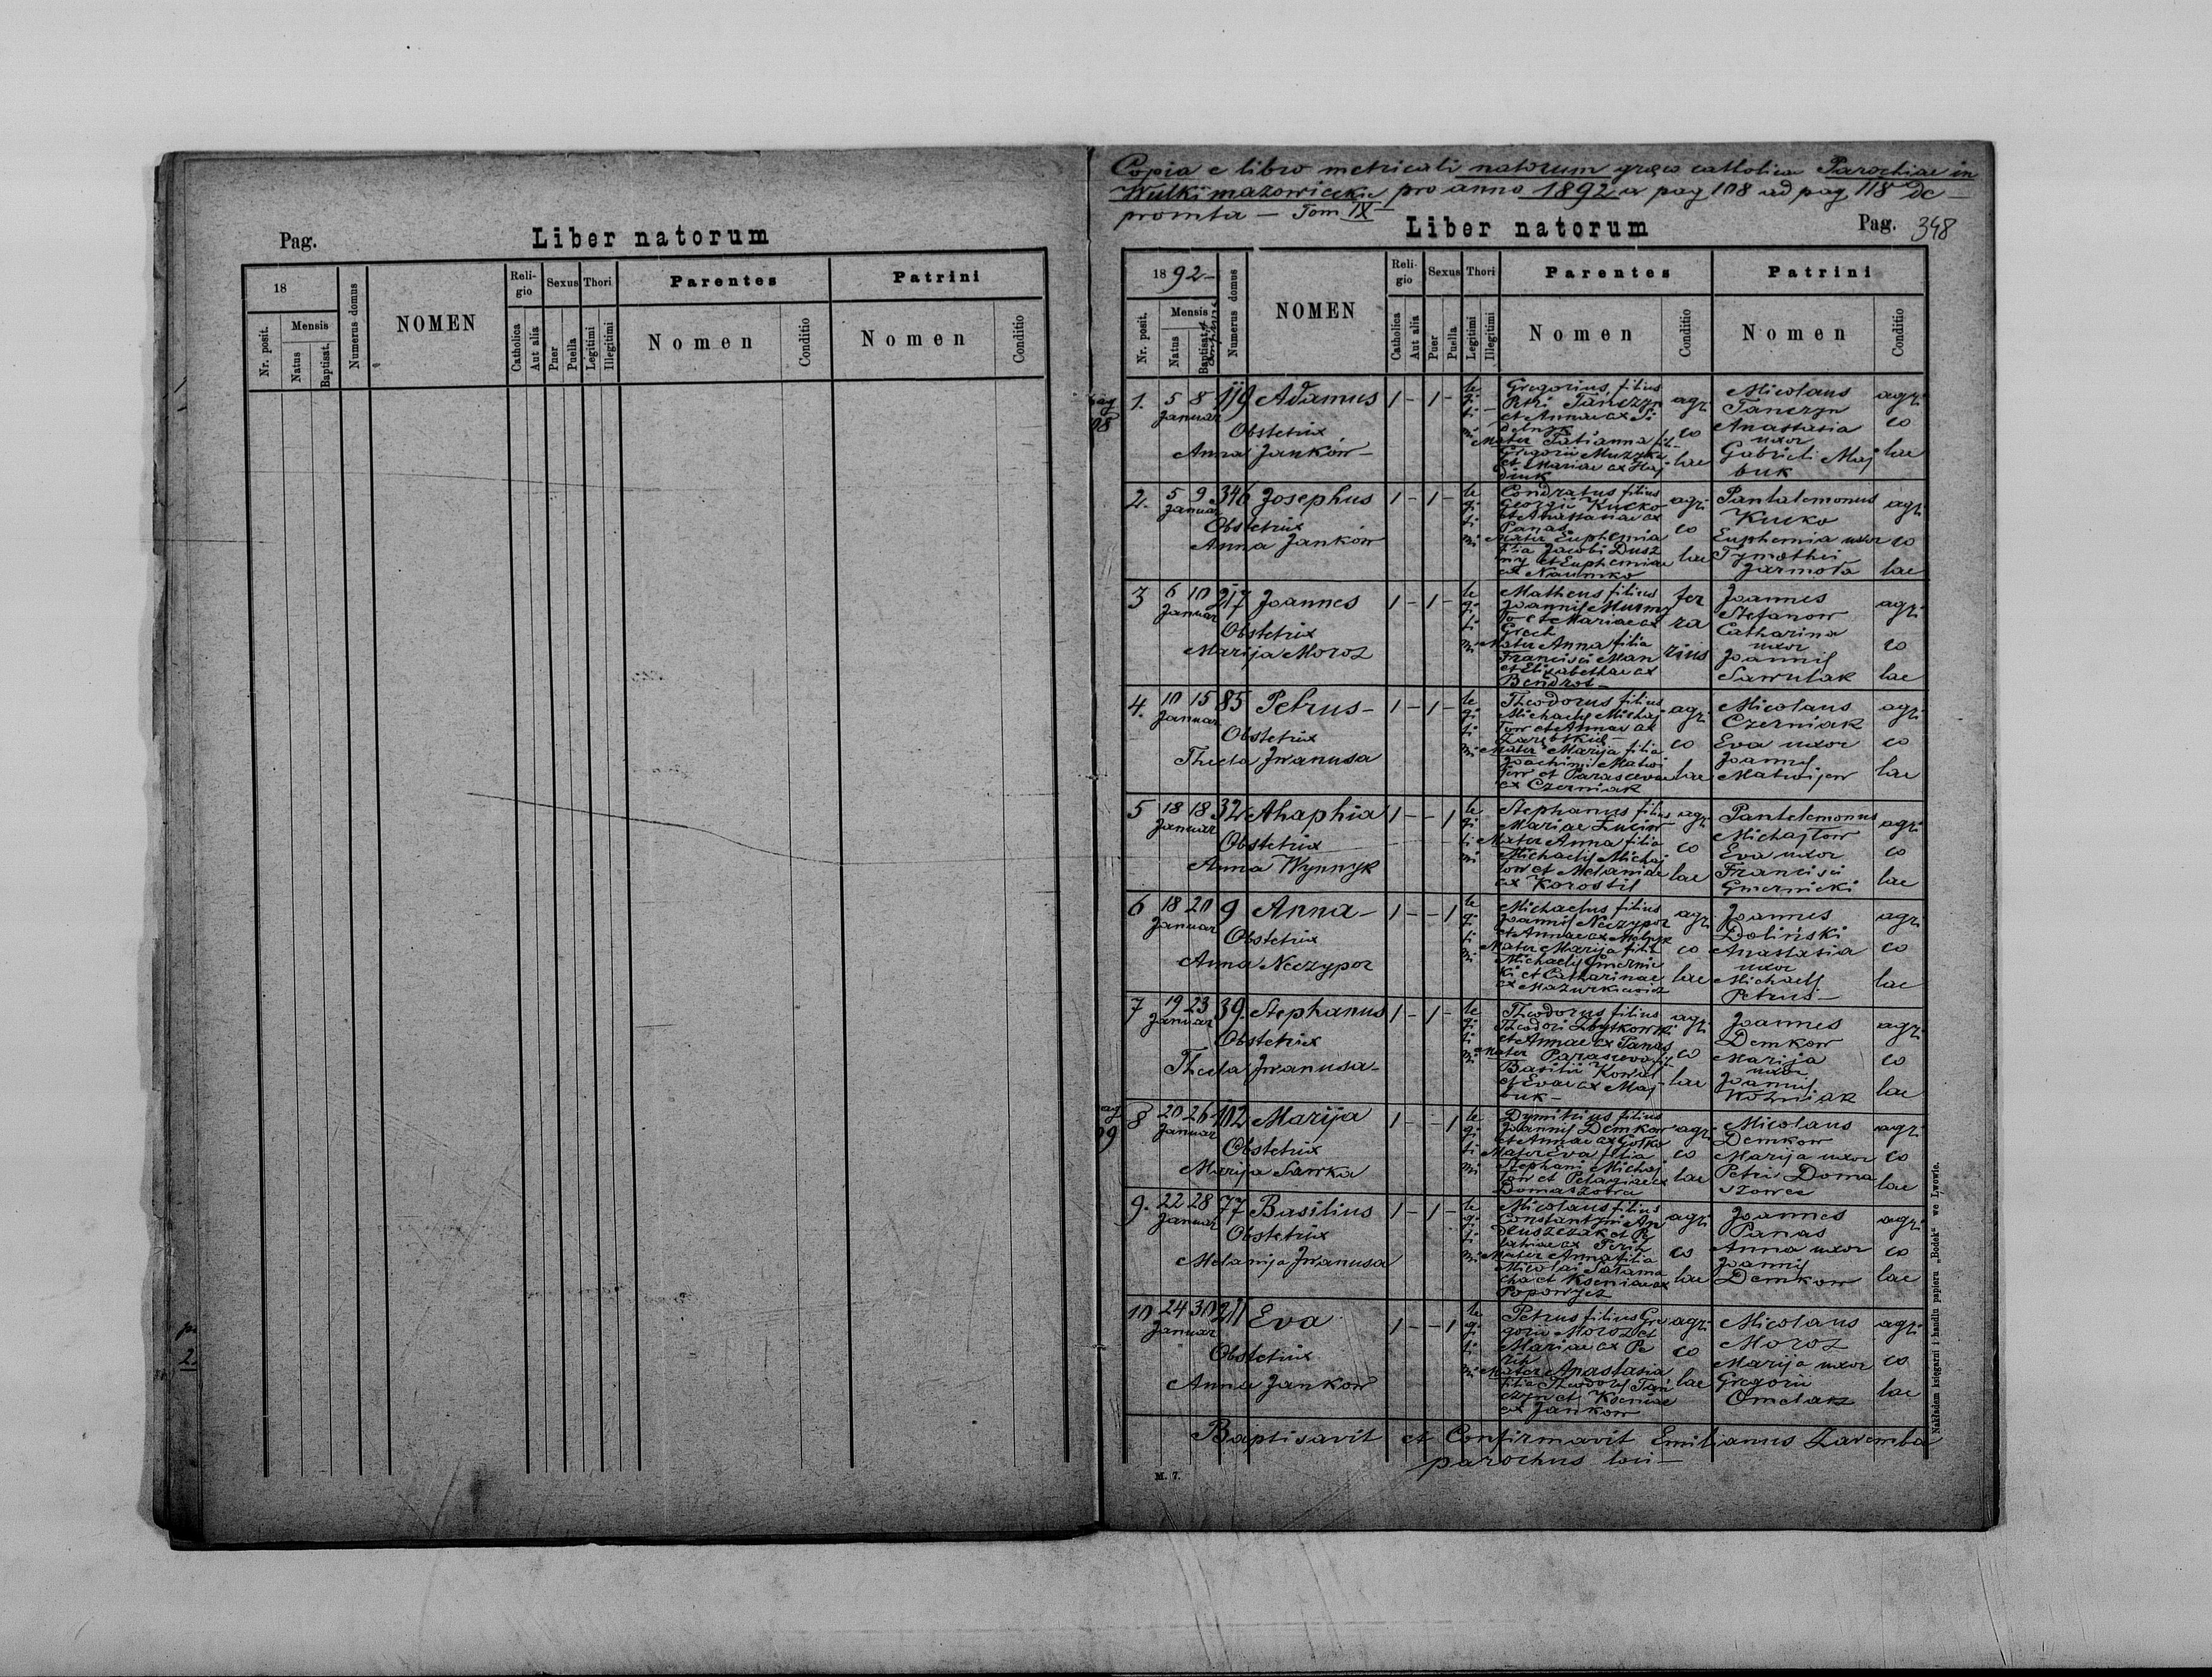 Pag.
Liber natorum
18
Numerus domus
NOMEN
Reli-
gio
Sexus
Thori
Parentes
Patrini
Nr. posit.
Mensis
Natus
Baptisat.
Catholica
Aut alia
Puer
Puella
Legitimi
Illegitimi
Nomen
Conditio
Nomen
Conditio
Copia e libro metricali natorum græco catholicae Parochiae in
Wulki mazowieckie pro anno 1892 a pag 108 ad pag 118 de-
promta - Tom IX -
Liber natorum
Pag. 348
1892-
Numerus domus
NOMEN
Reli-
gio
Sexus
Thori
Parentes
Patrini
Nr. posit.
Mensis
Natus
Baptisat.
Catholica
Aut alia
Puer
Puella
Legitimi
Illegitimi
Nomen
Conditio
Nomen
Conditio
1. 5 8 Januar 119 Adamus 1 - 1 - le gi ti mi
Obstetrix
Anna Janków -
Gregorius filius
Petri Tanczyn
et Annae ex
Mater Tatianna fil-
Gregorii Muzyka
et Mariae ex Haj
duk
agri co lae
Micolaus
Tanczyn
Anastasia
uxor
Gabrieli Maj
buk
agri co lae
2. 5 9 Januar 346 Josephus 1 - 1 - le gi ti mi
Obstetrix
Anna Janków
Condratus filius
Georgii Kucko
et Anastasiae ex
Panas
Mater Euphemia
filia Jacobi Dusz
ny et Euphemiae
ex Naumko
agri co lae
Pantalemonus
Kucko
Euphemia uxor
Tymothei
Jarmoła
agri co lae
3 6 10 Januar 217 Joannes 1 - 1 - le gi ti mi
Obstetrix
Marija Moroz
Matheus filius
Joannis
et Mariae ex
Grech
Mater Anna filia
Francisci Man
et Elisabethae ex
Bendrot -
fer ra rius
Joannes
Stefanow
Catharina
uxor
Joannis
Sawulak
agri co lae
4. 10 15 Januar 85 Petrus - 1 - 1 - le gi ti mi
Obstetrix
Thecla Iwanusa
Theodorus filius
Michaelis Michaj
łow et Annae ex
Mater Marija filia
Joachimi Matwi
jew et Parascevae
ex Czerniak
agri co lae
Micolaus
Czerniak
Eva uxor
Joannis
Matwijew
agri co lae
5 18 18 Januar 32 Ahaphia 1 - - 1 le gi ti mi
Obstetrix
Anna Wynnyk
Stephanus filius
Mariae Łuciw
Mater Anna filia
Michaelis Michaj
łow et Melaniae
ex Korostil
agri co lae
Pantelemonus
Michajłow
Eva uxor
Francisci
Gmernicki
agri co lae
6 18 20 Januar 9 Anna - 1 - - 1 le gi ti mi
Obstetrix
Anna Neczypor
Michaelus filius
Joannis Neczypor
et Annae ex Melnyk
Mater Marija filia
Michaelis Gmernic
ki et Catharinae
ex Mazurkiewicz
agri co lae
Joannes
Doliński
Anastasia
uxor
Michaelis
Petrus -
agri co lae
7 19 23 Januar 39. Stephanus 1 - 1 - le gi ti mi
Obstetrix
Thecla Iwanusa -
Theodorus filius
Theodori Zbytkowski
et Annae ex Panas
Mater Parasceva fil
Basilii Kowal
et Evae ex Maj
buk -
agri co lae
Joannes
Demkow
Marija
uxor
Joannis
Wozniak
agri co lae
8 20 26 Januar 102 Marija 1 - - 1 le gi ti mi
Obstetrix
Marija Sawka
Dymitrius filius
Joannis Demkow
et Annae ex Gotko
Mater Eva filia
Stephani Michaj
łow et Pelagiae ex
Domaszowa
agri co lae
Micolaus
Demkow
Marija uxor
Petri Doma
szowec
agri co lae
9. 22 28 Januar 77 Basilius 1 - 1 - le gi ti mi
Obstetrix
Melanija Iwanusa
Micolaus filius
Constantyni An
druszczak et Pe
lahiae ex Perih
Mater Anna filia
Micolai Sałama
cha et Kseniae ex
Popowycz
agri co lae
Joannes
Panas
Anna uxor
Joannis
Demkow
agri co lae
10 24 30 Januar 211 Eva 1 - - 1 le gi ti mi
Obstetrix
Anna Jankow
Petrus filius Gre
gorii Moroz et
Mariae ex Pe
rih
Mater Anastasia
filia Theodori Tan
czyn et Kseniae
ex Jankow
agri co lae
Micolaus
Moroz
Marija uxor
Gregorii
Omelak
agri co lae
Baptisavit et Confirmavit Emilianus Zaremba
parochus loci -
M. 7.
Nakładem księgarni i handlu papieru „Bodek“ we Lwowie.